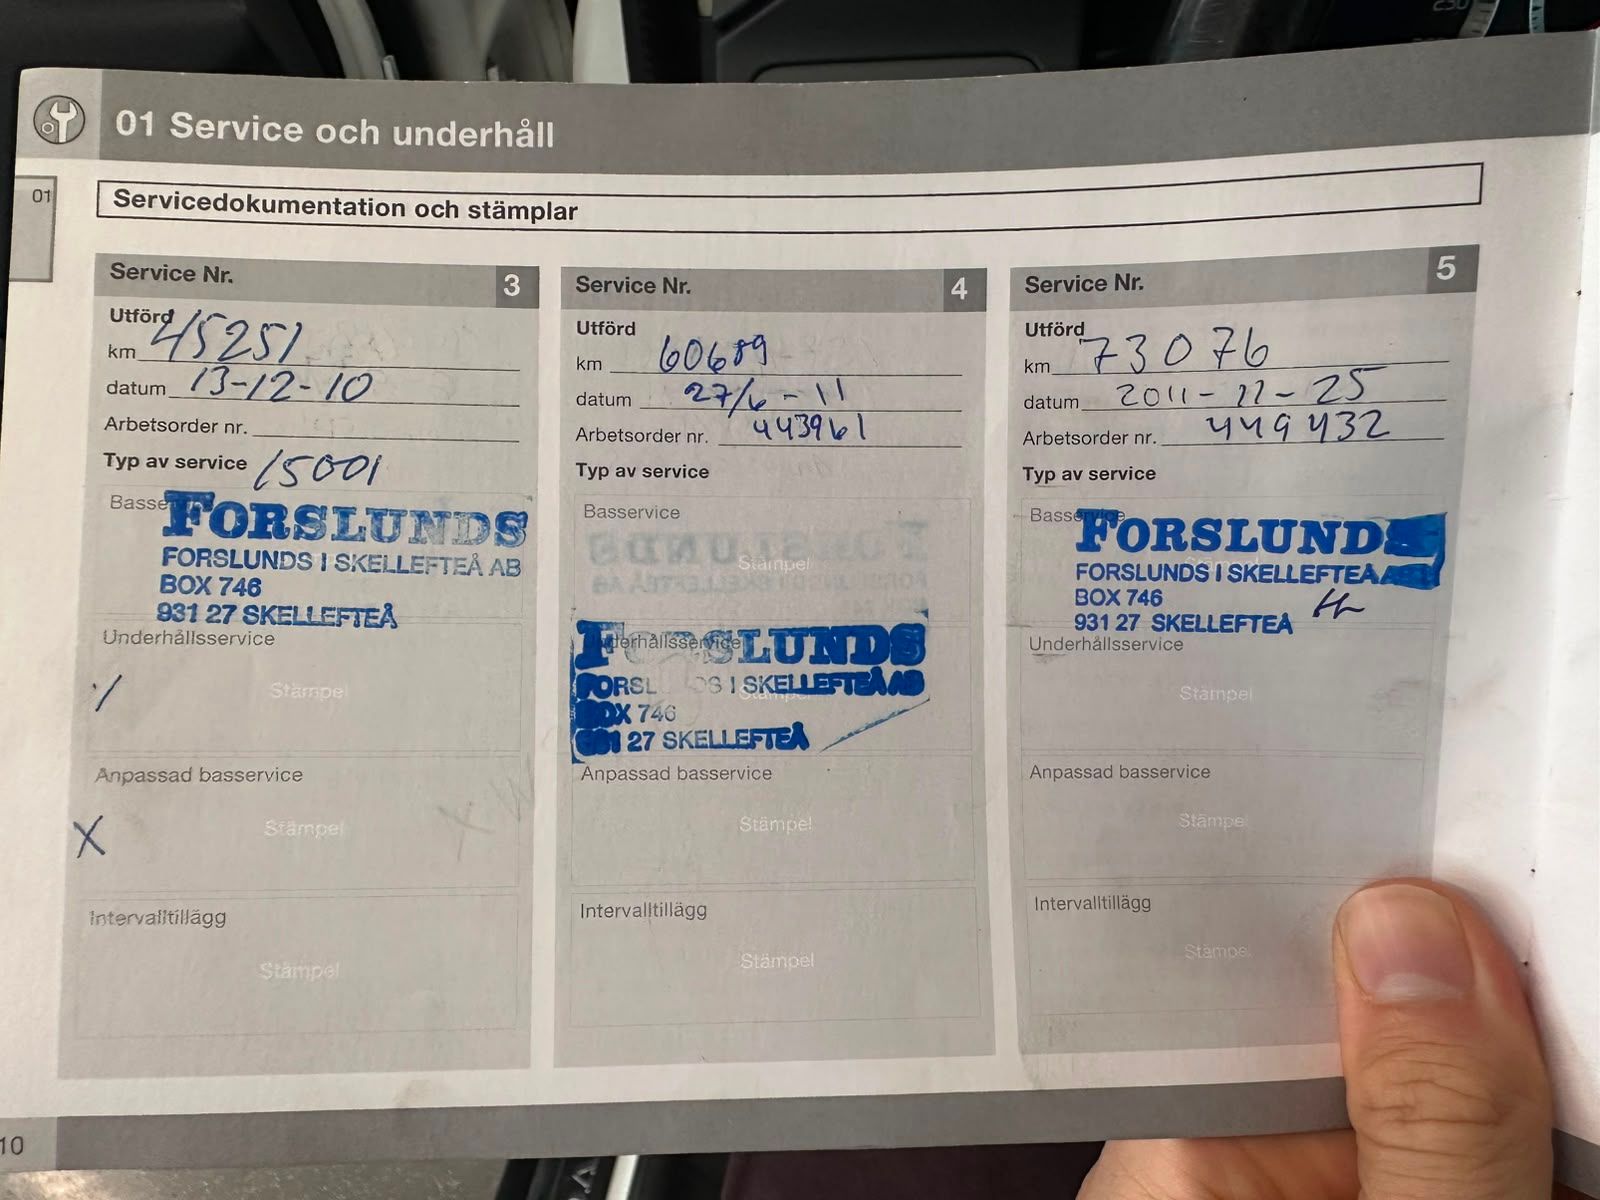 230
01 Service och underhåll
01
Servicedokumentation och stämplar
Service Nr. 3
Utförd
km 45251
datum 13-12-10
Arbetsorder nr.
Typ av service 15001
Basse
FORSLUNDS
FORSLUNDS I SKELLEFTEÅ AB
BOX 746
931 27 SKELLEFTEÅ
Underhållsservice
Stämpel
Anpassad basservice
X Stämpel
Intervalltillägg
Stämpel
Service Nr. 4
Utförd
km 60689
datum 27/6-11
Arbetsorder nr. 443961
Typ av service
Basservice
Stämpel
Underhållsservice
FORSLUNDS
FORSLUNDS I SKELLEFTEÅ AB
BOX 746
931 27 SKELLEFTEÅ
Anpassad basservice
Stämpel
Intervalltillägg
Stämpel
Service Nr. 5
Utförd
km 73076
datum 2011-11-25
Arbetsorder nr. 449432
Typ av service
Basservice
FORSLUNDS
FORSLUNDS I SKELLEFTEÅ AB
BOX 746
931 27 SKELLEFTEÅ
Underhållsservice
Stämpel
Anpassad basservice
Stämpel
Intervalltillägg
Stämpel
10